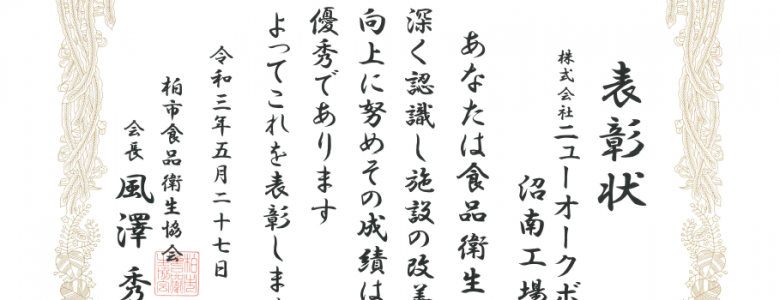 表彰状
株式会社ニューオークボ
沼南工場
あなたは食品衛生
深く認識し施設の改善
向上に努めその成績は
優秀であります
よってこれを表彰しま
令和三年五月二十七日
柏市食品衛生協会
会長 風澤 秀